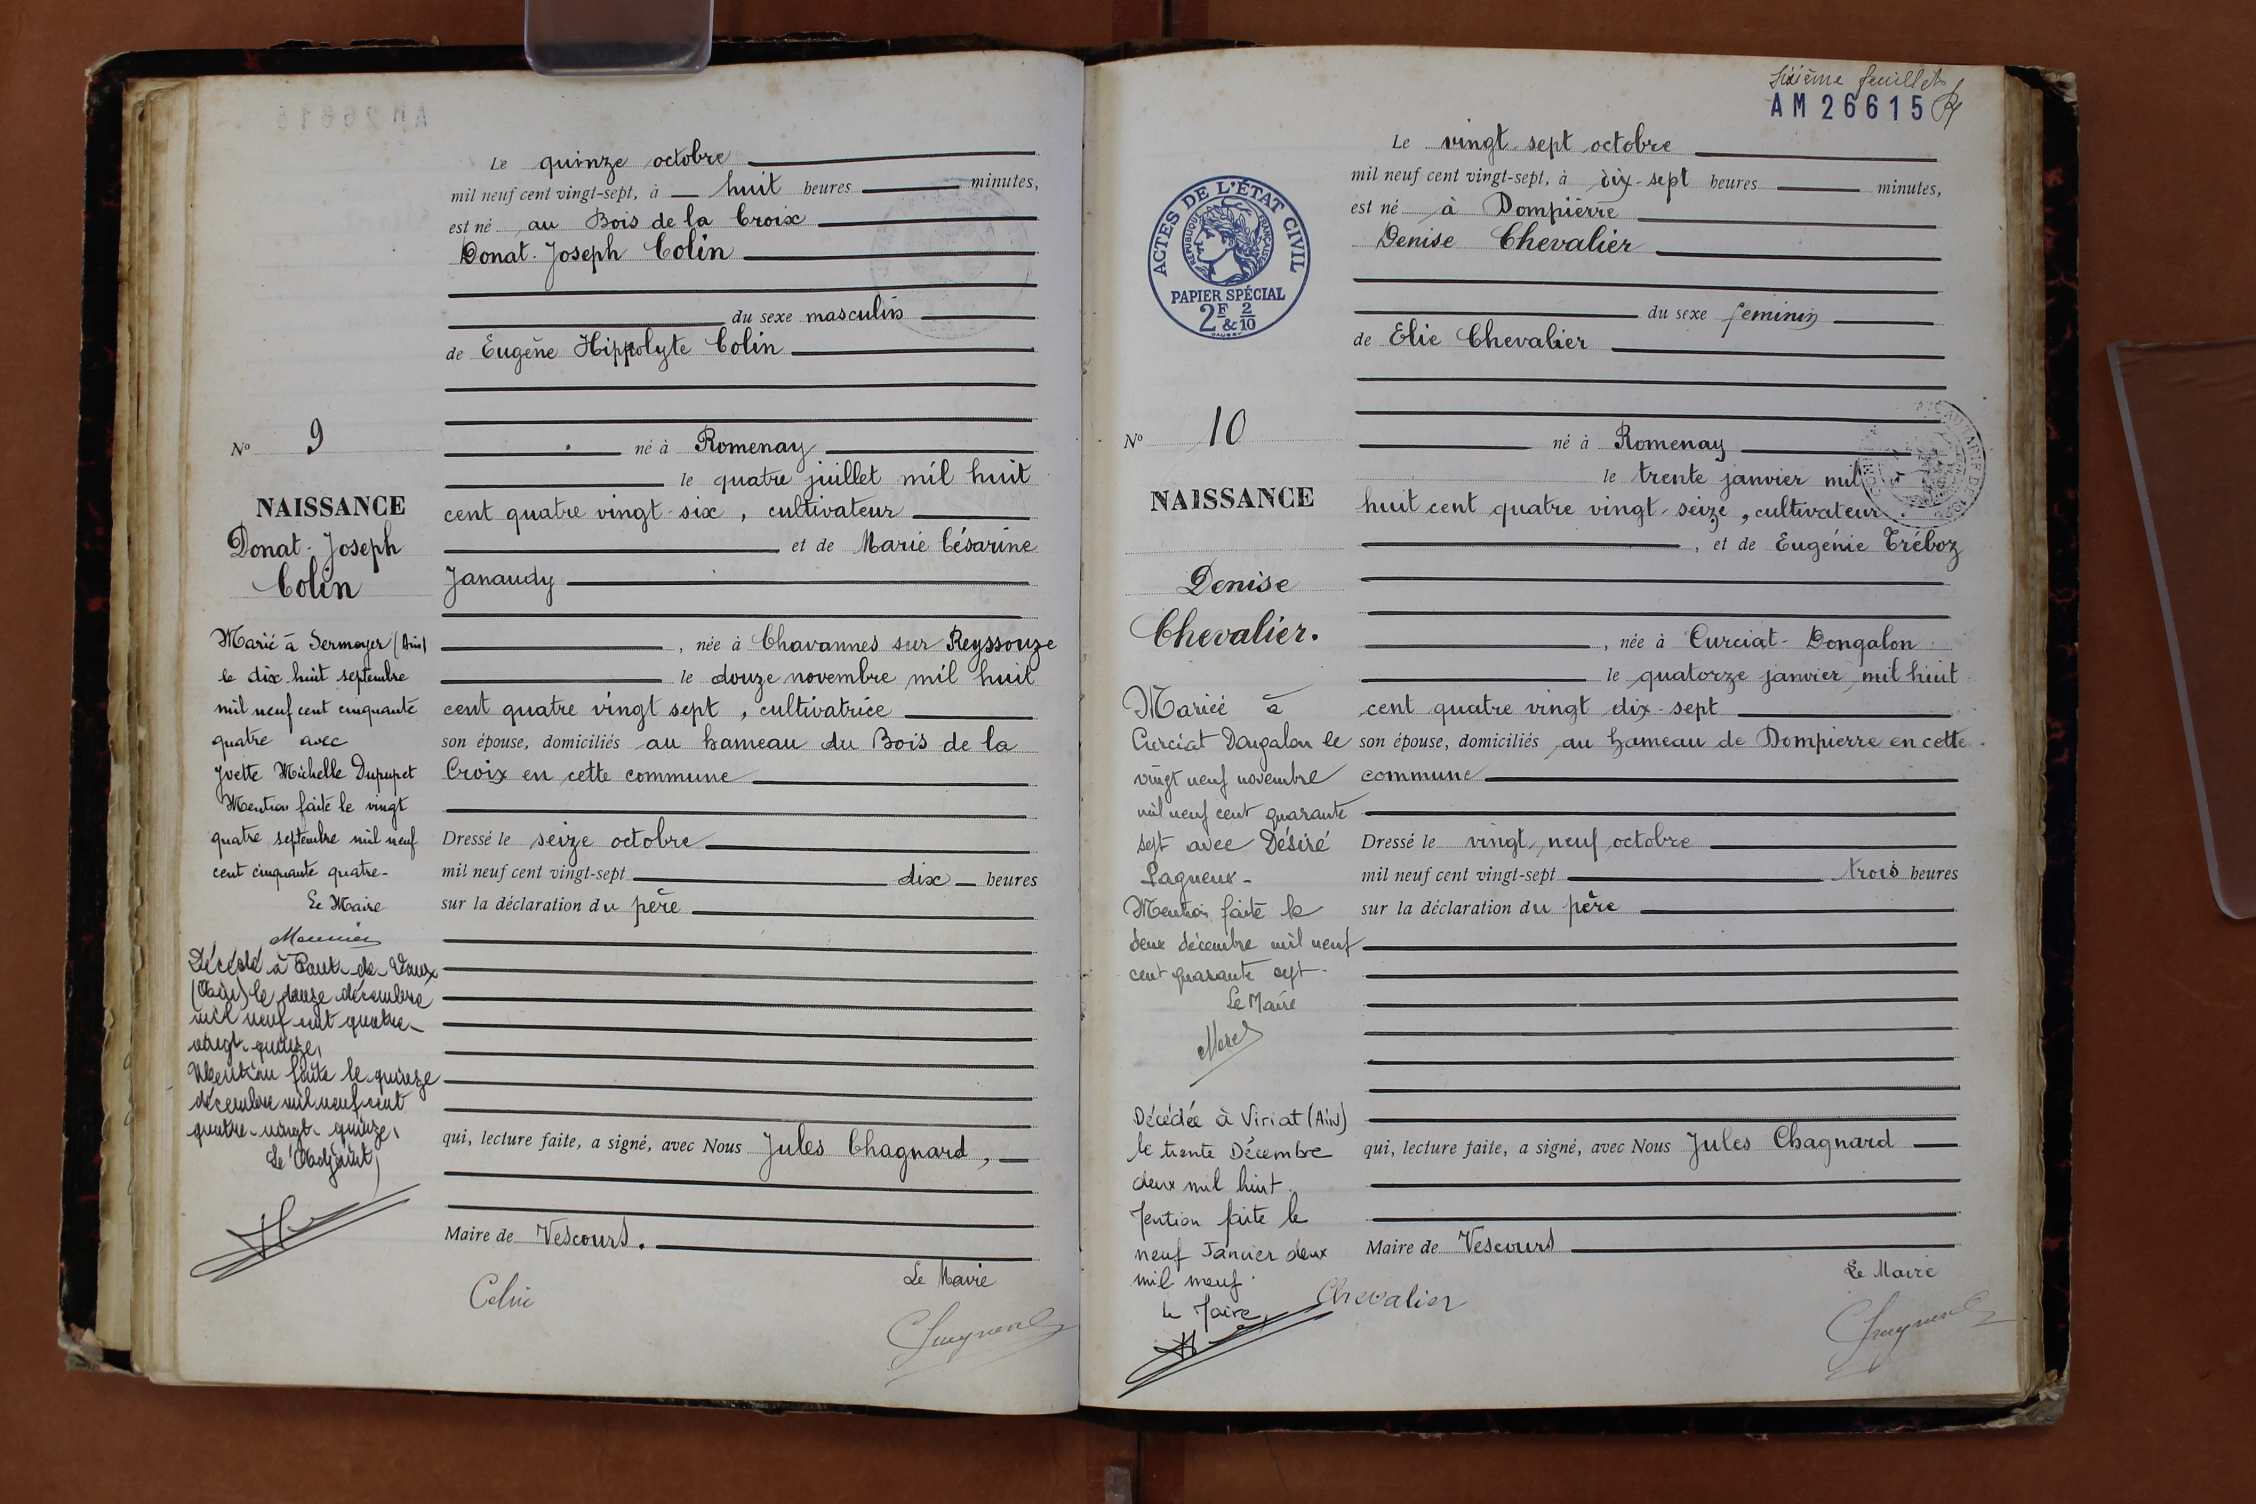 Le quinze octobre
mil neuf cent vingt-sept, à huit heures minutes,
est né au Bois de la Croix
Donat-Joseph Colin
du sexe masculin
de Eugène Hippolyte Colin
né à Romenay
le quatre juillet mil huit
cent quatre vingt-six, cultivateur
et de Marie Césarine
Janaudy
, née à Chavannes sur Reyssouze
le douze novembre mil huit
cent quatre vingt sept, cultivatrice
son épouse, domiciliés au hameau du Bois de la
Croix en cette commune
Dressé le seize octobre
mil neuf cent vingt-sept dix heures
sur la déclaration du père
qui, lecture faite, a signé, avec Nous Jules Chagnard,
Maire de Vescours.
Le Maire
Colin
N° 9
NAISSANCE
Donat-Joseph
Colin
Marié à Sermoyer (Ain)
le dix huit septembre
mil neuf cent cinquante
quatre avec
Yvette Michelle Dupupet
Mention faite le vingt
quatre septembre mil neuf
cent cinquante quatre-
Le Maire
Décédé à Pont-de-Vaux
(Ain) le douze décembre
mil neuf cent quatre-
vingt-quinze,
Mention faite le quinze
décembre mil neuf cent
quatre-vingt-quinze,
Le l'Adjoint,
Sixième feuillet
AM 26615
ACTES DE L'ÉTAT CIVIL
RÉPUBLIQUE FRANÇAISE
PAPIER SPÉCIAL
2F & 2/10
Le vingt-sept octobre
mil neuf cent vingt-sept, à dix-sept heures minutes,
est né à Dompierre
Denise Chevalier
du sexe féminin
de Elie Chevalier
né à Romenay
le trente janvier mil
huit cent quatre vingt-seize, cultivateur
, et de Eugénie Tréboz
, née à Curciat-Dongalon
le quatorze janvier mil huit
cent quatre vingt dix-sept
son épouse, domiciliés au hameau de Dompierre en cette
commune
Dressé le vingt neuf octobre
mil neuf cent vingt-sept trois heures
sur la déclaration du père
qui, lecture faite, a signé, avec Nous Jules Chagnard
Maire de Vescours
Le Maire
Chevalier
N° 10
NAISSANCE
Denise
Chevalier.
Mariée à
Curciat Dongalon le
vingt neuf novembre
mil neuf cent quarante
sept avec Désiré
Pagneux-
Mention faite le
deux décembre mil neuf
cent quarante sept-
Le Maire
Morel
Décédée à Viriat (Ain)
le trente Décembre
deux mil huit.
Mention faite le
neuf Janvier deux
mil neuf.
Le Maire,